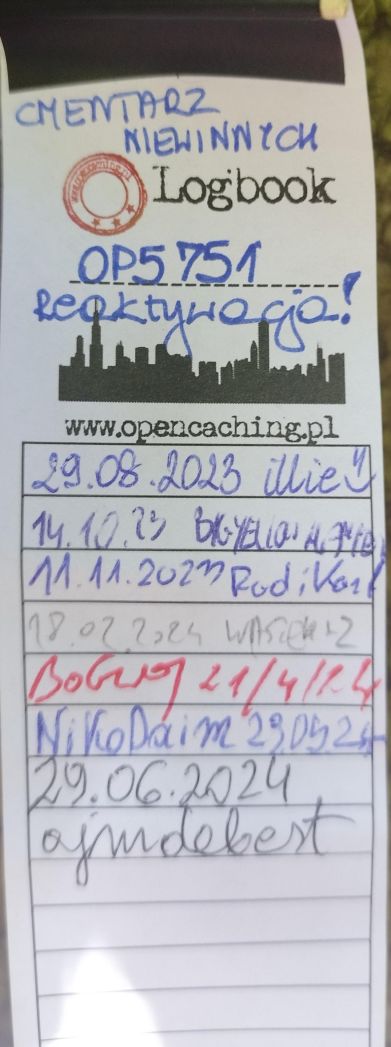 CMENTARZ
NIEWINNYCH
Logbook
OP5751
Reaktywacja!
www.opencaching.pl
29.08.2023
14.10.23
11.11.2023
18.02.2024
21/4/24
NiKoDaim 290524
29.06.2024
ajmdebest